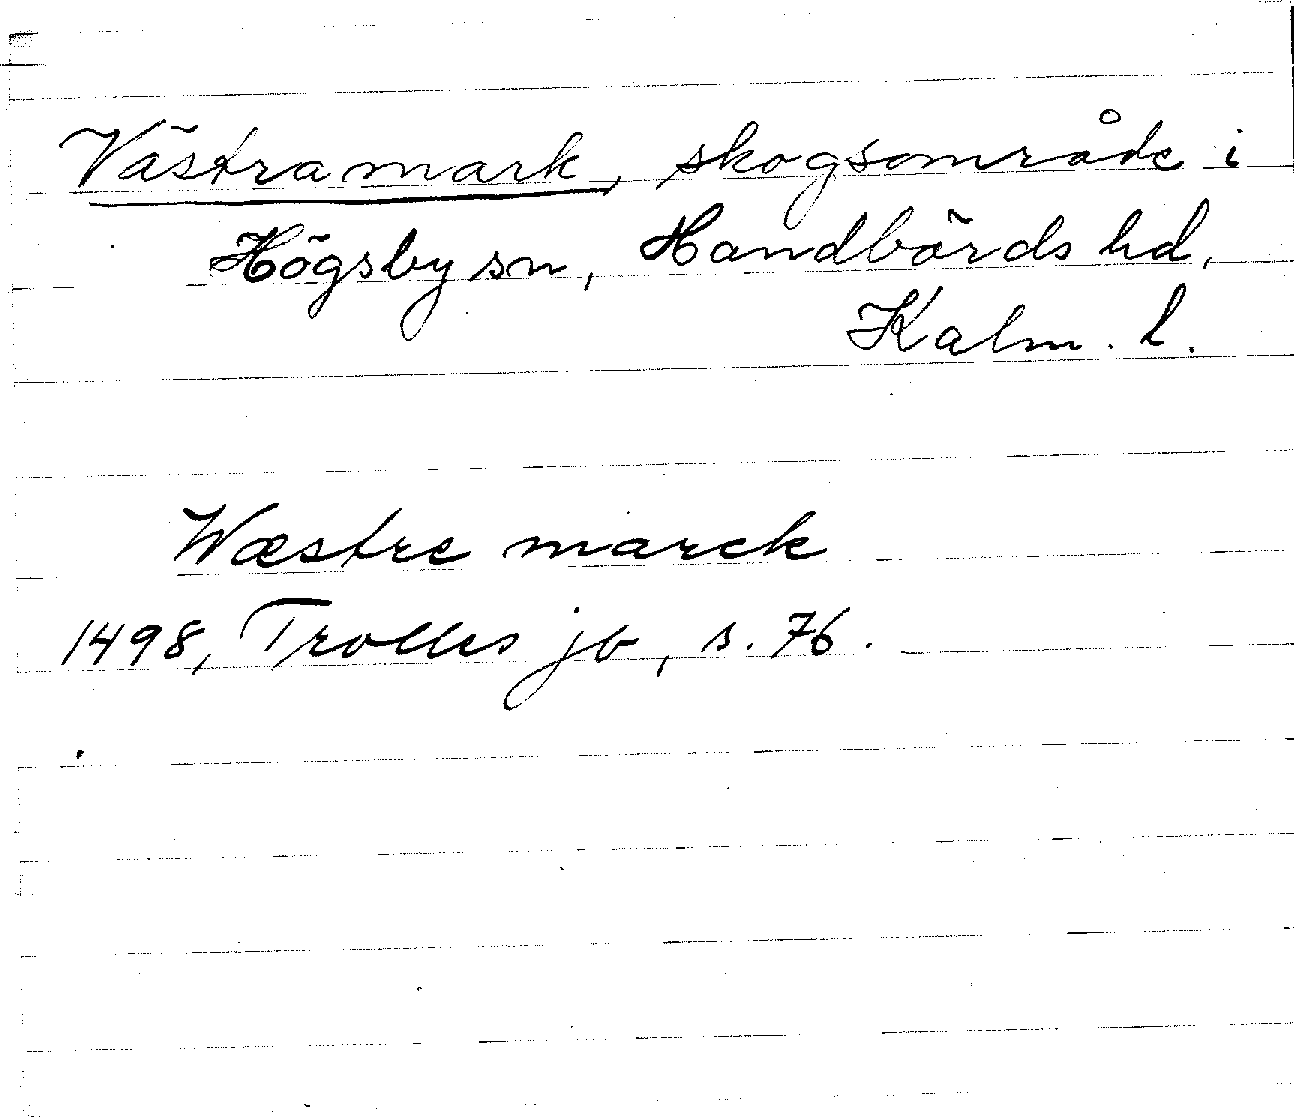 Västramark, skogsområde i
Högsby sn, Handbörds hd,
Kalm. l.
Wæstre marck
1498, Trolles jb, s. 76.